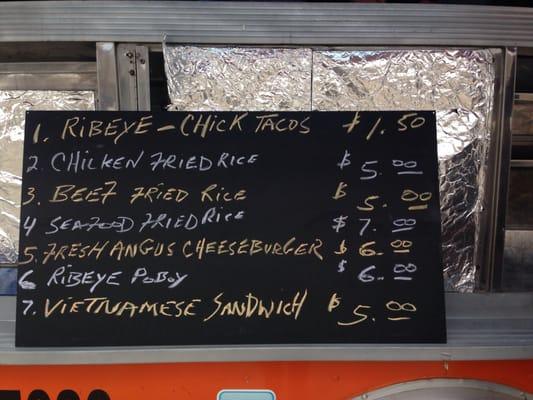 1. RIBEYE - CHICK TACOS $1.50
2. CHICKEN FRIED RICE $5.00
3. BEEF FRIED RICE $5.00
4 SEAFOOD FRIED RICE $7.00
5. FRESH ANGUS CHEESEBURGER $6.00
6 RIBEYE POBOY $6.00
7. VIETNAMESE SANDWICH $5.00